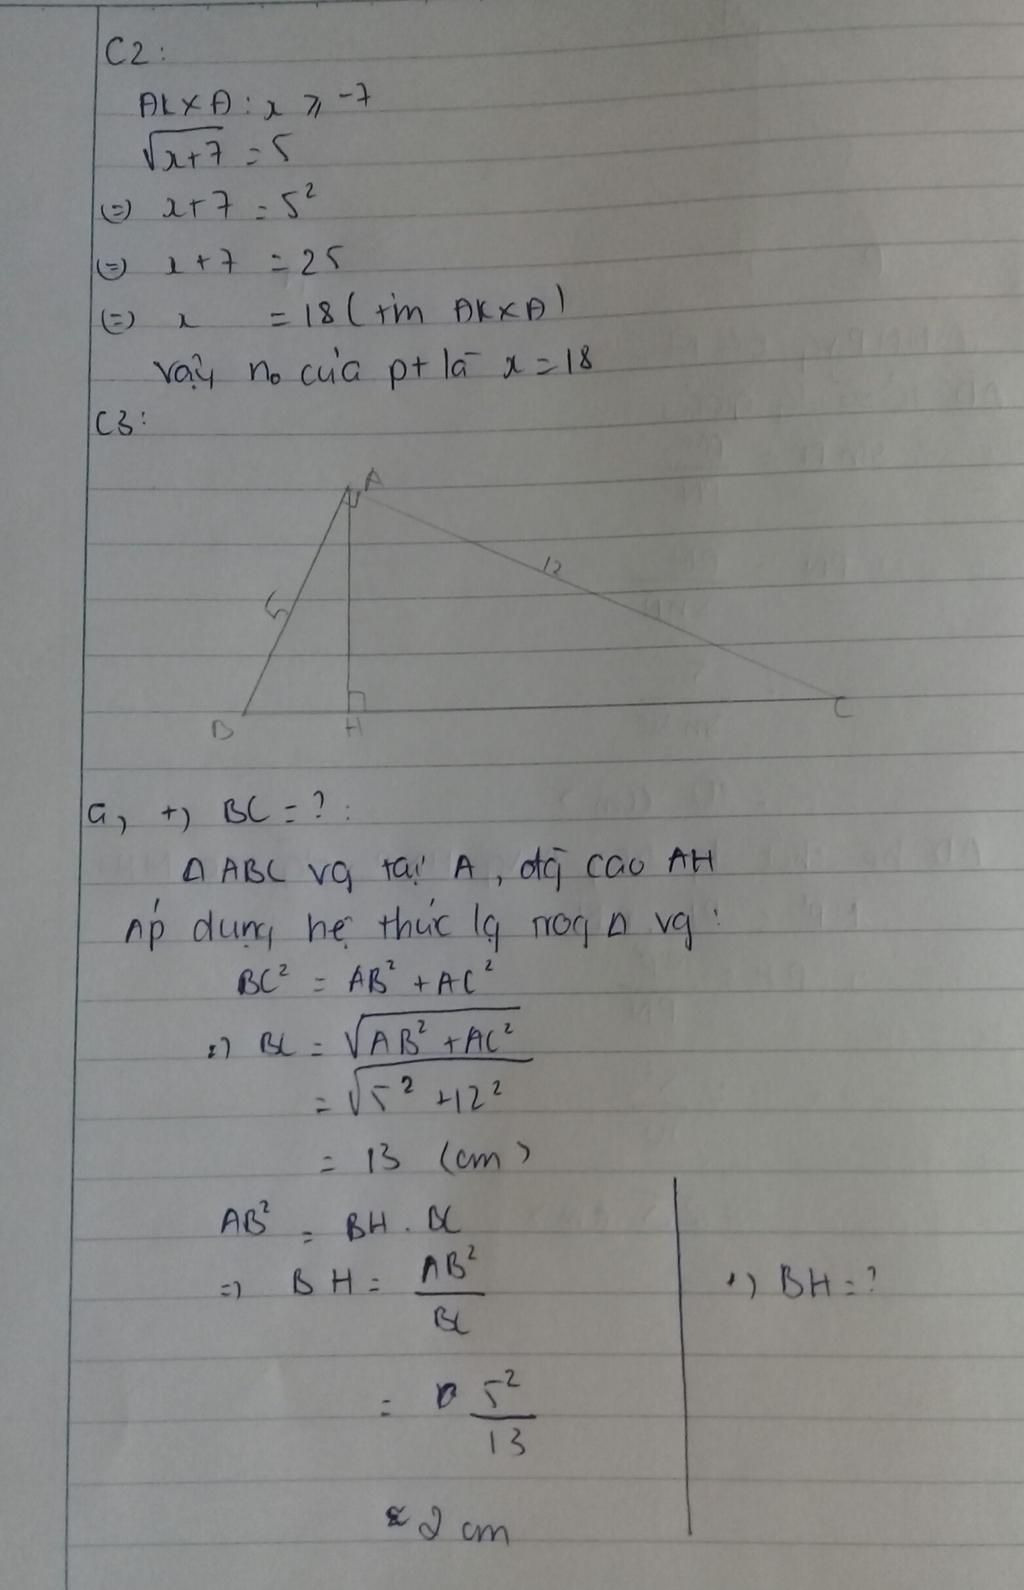 C2:
ĐKXĐ: x ⩾ -7
√x+7 = 5
(=) x+7 = 5²
(=) x+7 = 25
(=) x = 18 (t/m ĐKXĐ)
vậy no của pt là x = 18
C3:
A
5
12
B H C
a, +, BC = ? :
Δ ABC vg tại A, đg cao AH
Áp dụng hệ thức lg trog Δ vg :
BC² = AB² + AC²
=) BC = √AB² + AC²
= √5² + 12²
= 13 (cm)
AB² = BH . BC
=) BH = AB²/BC
+) BH = ?
= 5²/13
≈ 2 cm